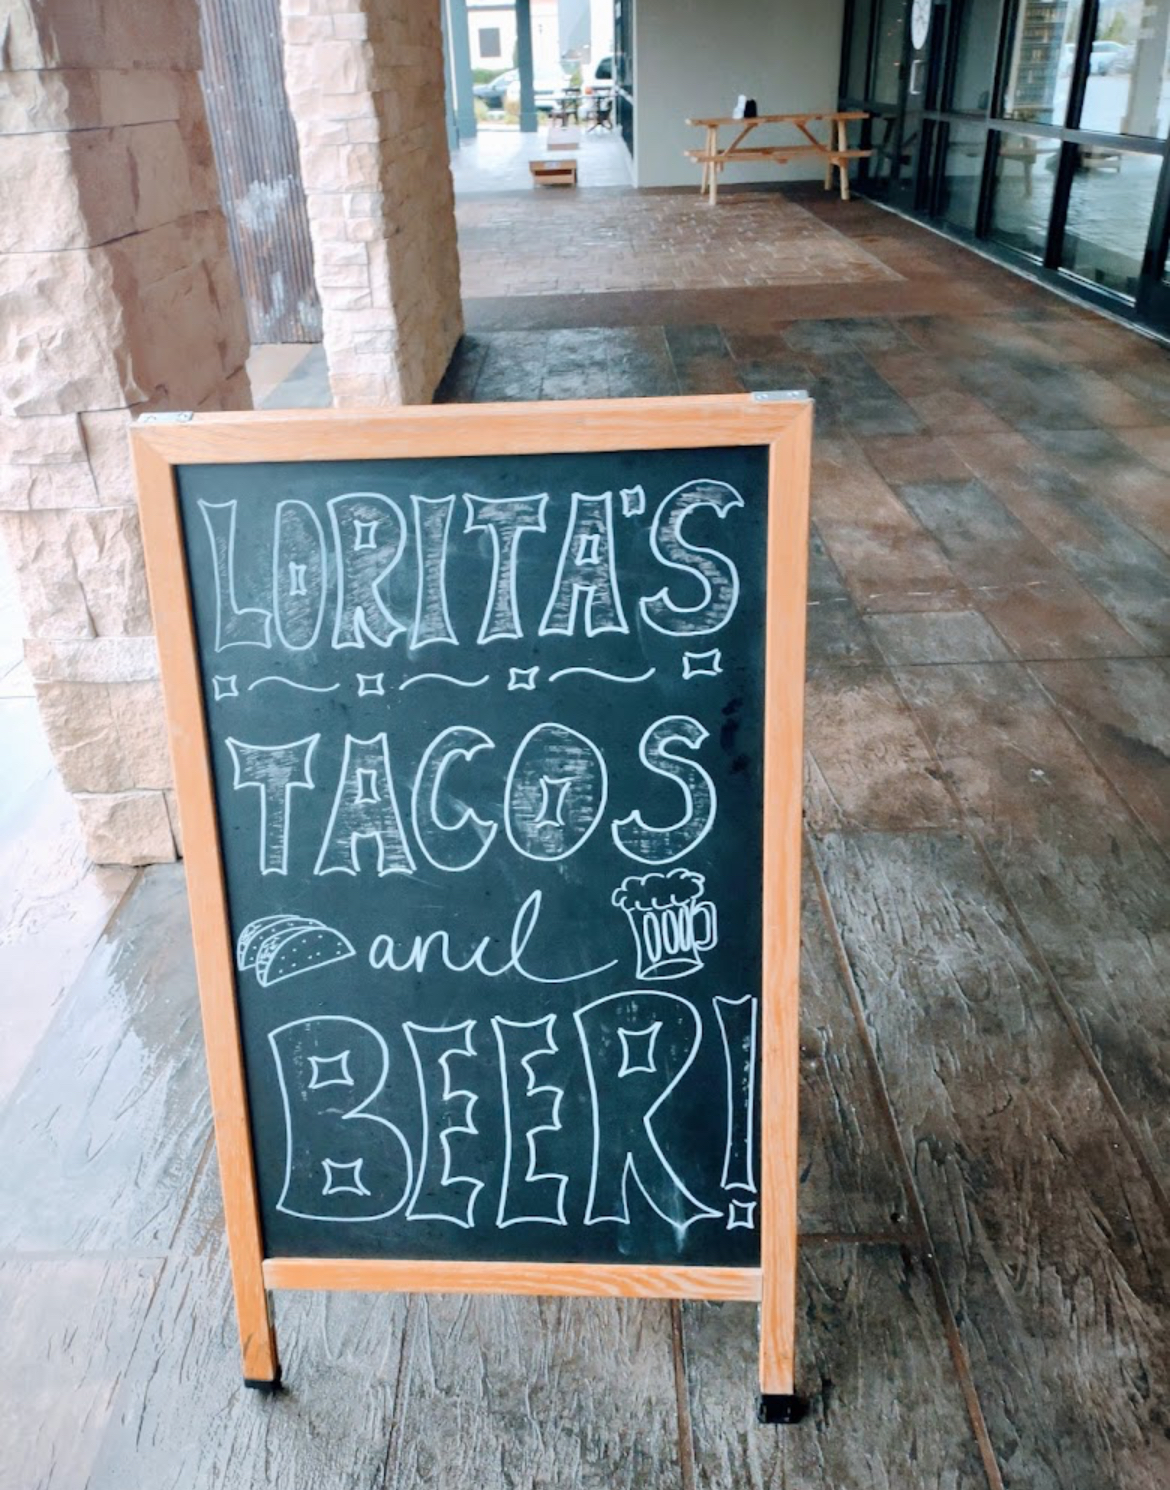 LORITA'S
TACOS
and
BEER!